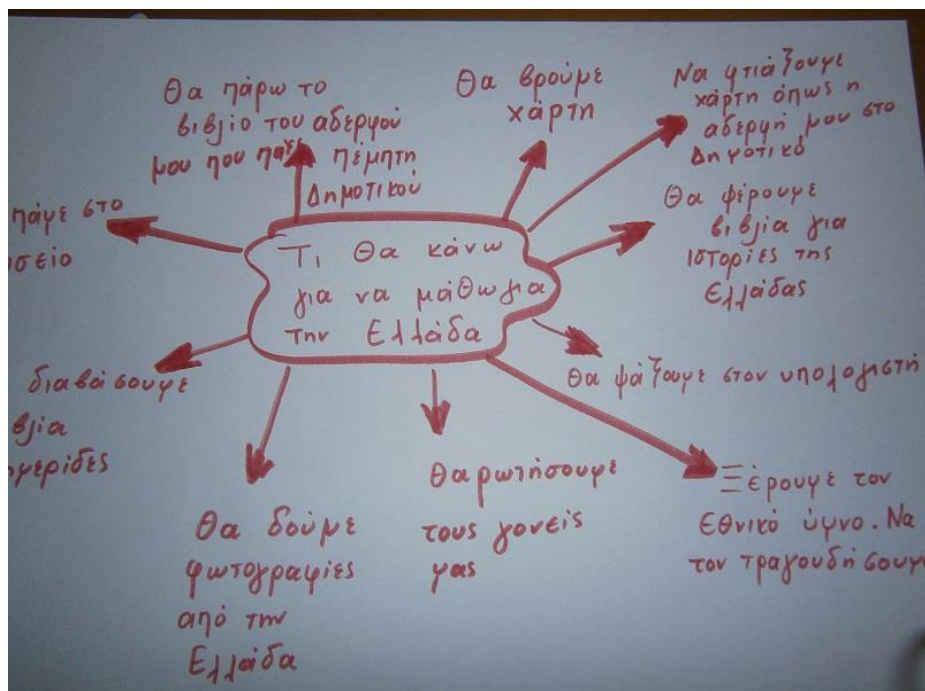 Τι θα κάνω
για να μάθω για
την Ελλάδα
Θα πάρω το
βιβλίο του αδερφού
μου που πάει πέμπτη
Δημοτικού
Θα βρούμε
χάρτη
Να φτιάξουμε
χάρτη όπως η
αδερφή μου στο
Δημοτικό
Θα φέρουμε
βιβλία για
ιστορίες της
Ελλάδας
Θα ψάξουμε στον υπολογιστή
Ξέρουμε τον
Εθνικό ύμνο. Να
τον τραγουδήσουμ
Θα ρωτήσουμε
τους γονείς
μας
Θα δούμε
φωτογραφίες
από την
Ελλάδα
διαβάσουμε
βλία
μερίδες
πάμε στο
σείο